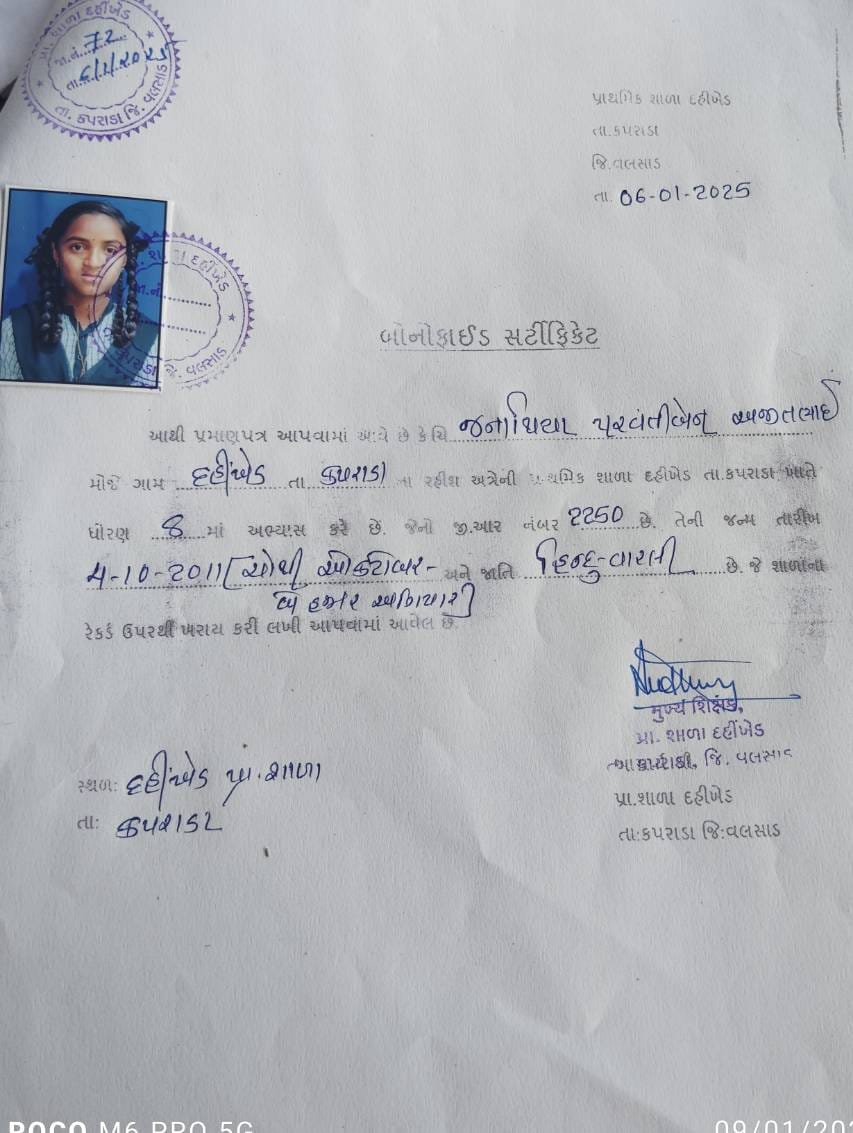 પ્રા. શાળા દહીંખેડ
જા.નં. 72
તા. 6/1/2025
તા. કપરાડા જિ. વલસાડ
પ્રાથમિક શાળા દહીંખેડ
તા.કપરાડા
જિ.વલસાડ
તા. 06-01-2025
શાળા દહીંખેડ
જા.નં.
કપરાડા જિ. વલસાડ
બોનોફાઈડ સર્ટીફિકેટ
આથી પ્રમાણપત્ર આપવામાં આવે છે કે ચિ પરવંતીબેન અજીતભાઈ
મોજે ગામ દહીંખેડ તા કપરાડા ના રહીશ અત્રેની પ્રાથમિક શાળા દહીંખેડ તા.કપરાડા ખાતે
ધોરણ 8 માં અભ્યાસ કરે છે. જેનો જી.આર નંબર 2250 છે. તેની જન્મ તારીખ
4-10-2011 [ચોથી ઓક્ટોબર- અને જાતિ હિન્દુ-વારલી છે. જે શાળાના
બે હજાર અગિયાર]
રેકર્ડ ઉપરથી ખરાય કરી લખી આપવામાં આવેલ છે
મુખ્ય શિક્ષક,
પ્રા. શાળા દહીંખેડ
જિ. વલસાડ
પ્રા.શાળા દહીંખેડ
તા:કપરાડા જિ:વલસાડ
સ્થળ: દહીંખેડ પ્રા. શાળા
તા: કપરાડા
POCO M6 PRO 5G
09/01/202